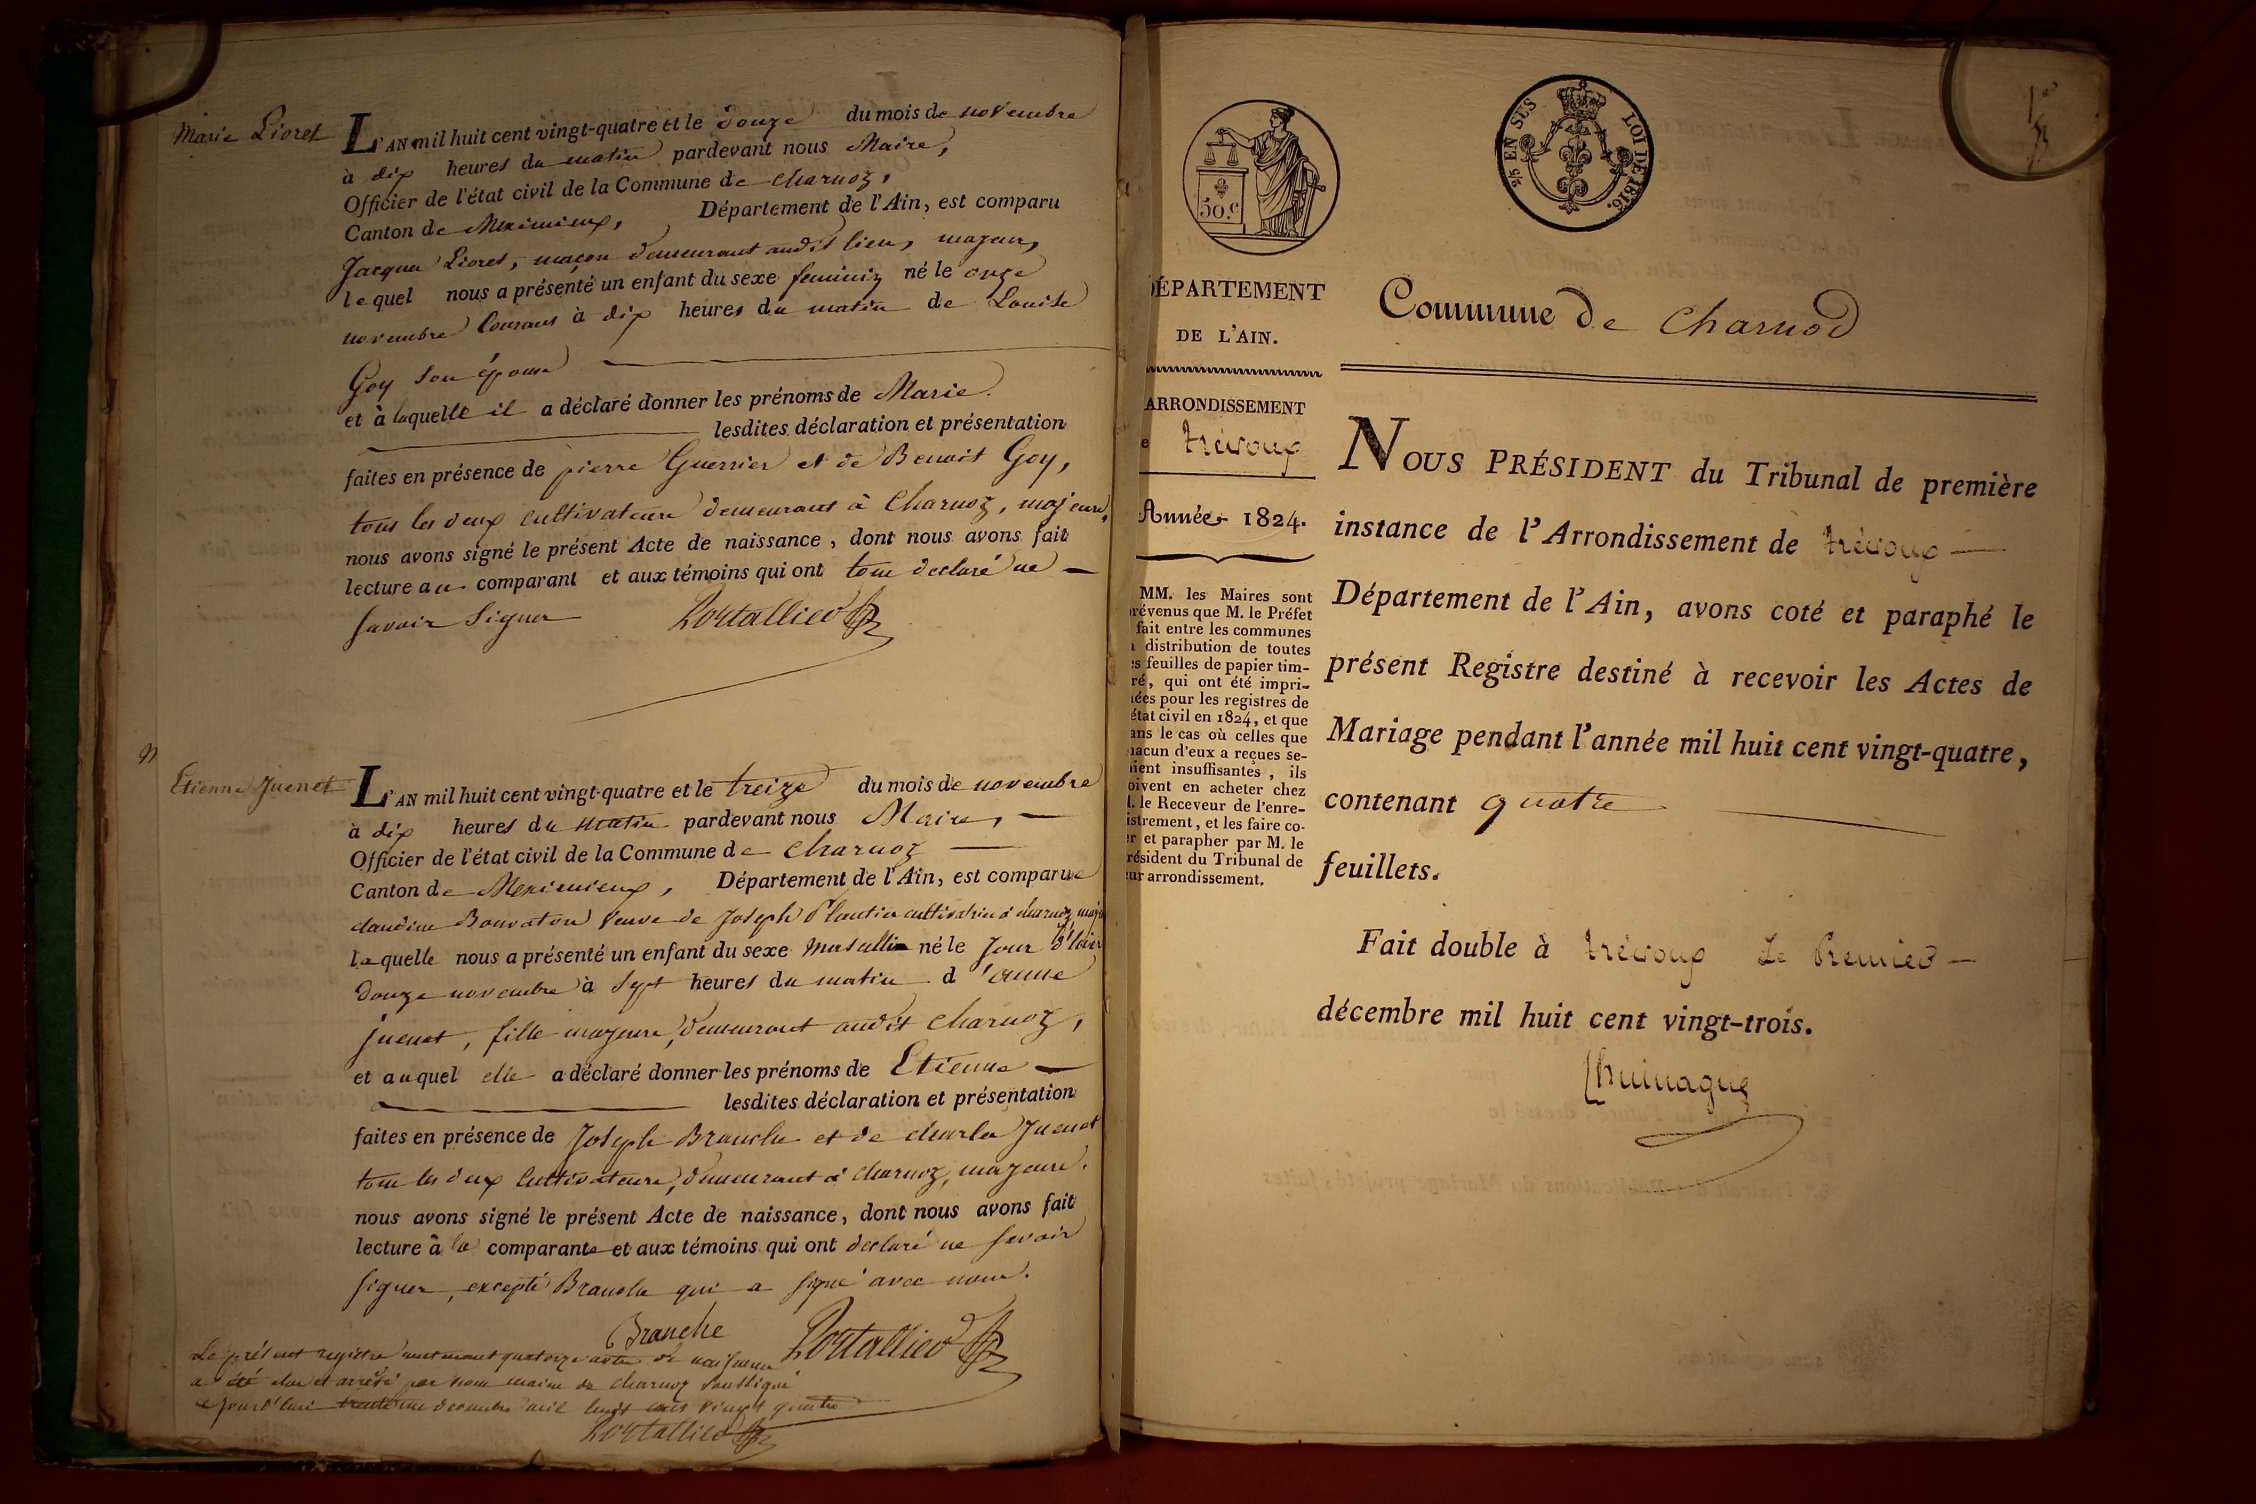 Marie Lioret
L'AN mil huit cent vingt-quatre et le douze du mois de novembre
à dix heures du matin pardevant nous Maire,
Officier de l'état civil de la Commune de Charnoz,
Canton de Meximieux, Département de l'Ain, est comparu
Jacques Lioret, maçon demeurant audit lieu, majeur,
lequel nous a présenté un enfant du sexe feminin né le onze
novembre Courant à dix heures du matin de Louise
Goy son épouse
et à laquelle il a déclaré donner les prénoms de Marie.
lesdites déclaration et présentation
faites en présence de pierre Guerrier et de Benoit Goy,
tous les deux cultivateurs demeurant à Charnoz, majeurs,
nous avons signé le présent Acte de naissance, dont nous avons fait
lecture au comparant et aux témoins qui ont tous declaré ne
savoir signer Portallier
Etienne Juenet
L'AN mil huit cent vingt-quatre et le treize du mois de novembre
à dix heures du matin pardevant nous Maire,
Officier de l'état civil de la Commune de Charnoz
Canton de Meximieux, Département de l'Ain, est comparue
claudine Bouvaton veuve de Joseph Plantier cultivatrice à charnoz
laquelle nous a présenté un enfant du sexe masculin né le Jour d'hier
douze novembre à sept heures du matin d'anne
juenet, fille majeure, demeurant audit Charnoz,
et auquel elle a déclaré donner les prénoms de Etienne
lesdites déclaration et présentation
faites en présence de Joseph Branche et de charles Juenet
tous les deux Cultivateurs, demeurant à charnoz, majeurs.
nous avons signé le présent Acte de naissance, dont nous avons fait
lecture à la comparante et aux témoins qui ont declaré ne savoir
signer, excepté Branche qui a signé avec nous.
Branche Portallier
Le présent registre contenant quatorze actes de naissance
a été clos et arrêté par nous maire de charnoz soussigné
cejourd'hui trente un decembre mil huit cent vingt quatre
Portallier
50.c
2/5 EN SUS LOI DE 1816.
DÉPARTEMENT
DE L'AIN.
ARRONDISSEMENT
e trévoux
Année 1824.
MM. les Maires sont
prévenus que M. le Préfet
fait entre les communes
a distribution de toutes
es feuilles de papier tim-
ré, qui ont été impri-
ées pour les registres de
état civil en 1824, et que
ans le cas où celles que
hacun d'eux a reçues se-
aient insuffisantes, ils
oivent en acheter chez
M. le Receveur de l'enre-
istrement, et les faire co-
er et parapher par M. le
résident du Tribunal de
eur arrondissement.
Commune de Charnod
NOUS PRÉSIDENT du Tribunal de première
instance de l'Arrondissement de trévoux
Département de l'Ain, avons coté et paraphé le
présent Registre destiné à recevoir les Actes de
Mariage pendant l'année mil huit cent vingt-quatre,
contenant quatre
feuillets.
Fait double à trévoux Le Premier
décembre mil huit cent vingt-trois.